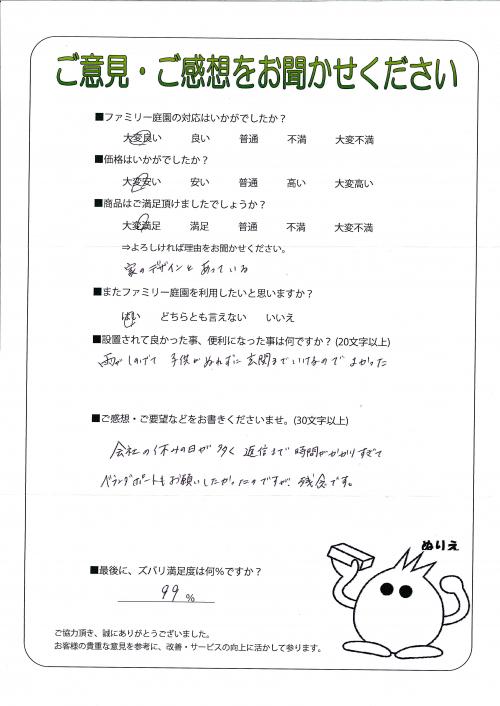 ご意見・ご感想をお聞かせください
■ファミリー庭園の対応はいかがでしたか？
大変良い 良い 普通 不満 大変不満
■価格はいかがでしたか？
大変安い 安い 普通 高い 大変高い
■商品はご満足頂けましたでしょうか？
大変満足 満足 普通 不満 大変不満
⇒よろしければ理由をお聞かせください。
家のデザインと あっている
■またファミリー庭園を利用したいと思いますか？
はい どちらとも言えない いいえ
■設置されて良かった事、便利になった事は何ですか？(20文字以上)
雨がしのげて 子供がぬれずに玄関までいけるので よかった
■ご感想・ご要望などをお書きくださいませ。(30文字以上)
会社の休みの日が多く 返信まで時間がかかりすぎて
ベランダポートもお願いしたかったのですが、残念です。
ぬりえ
■最後に、ズバリ満足度は何％ですか？
99 ％
ご協力頂き、誠にありがとうございました。
お客様の貴重な意見を参考に、改善・サービスの向上に活かして参ります。